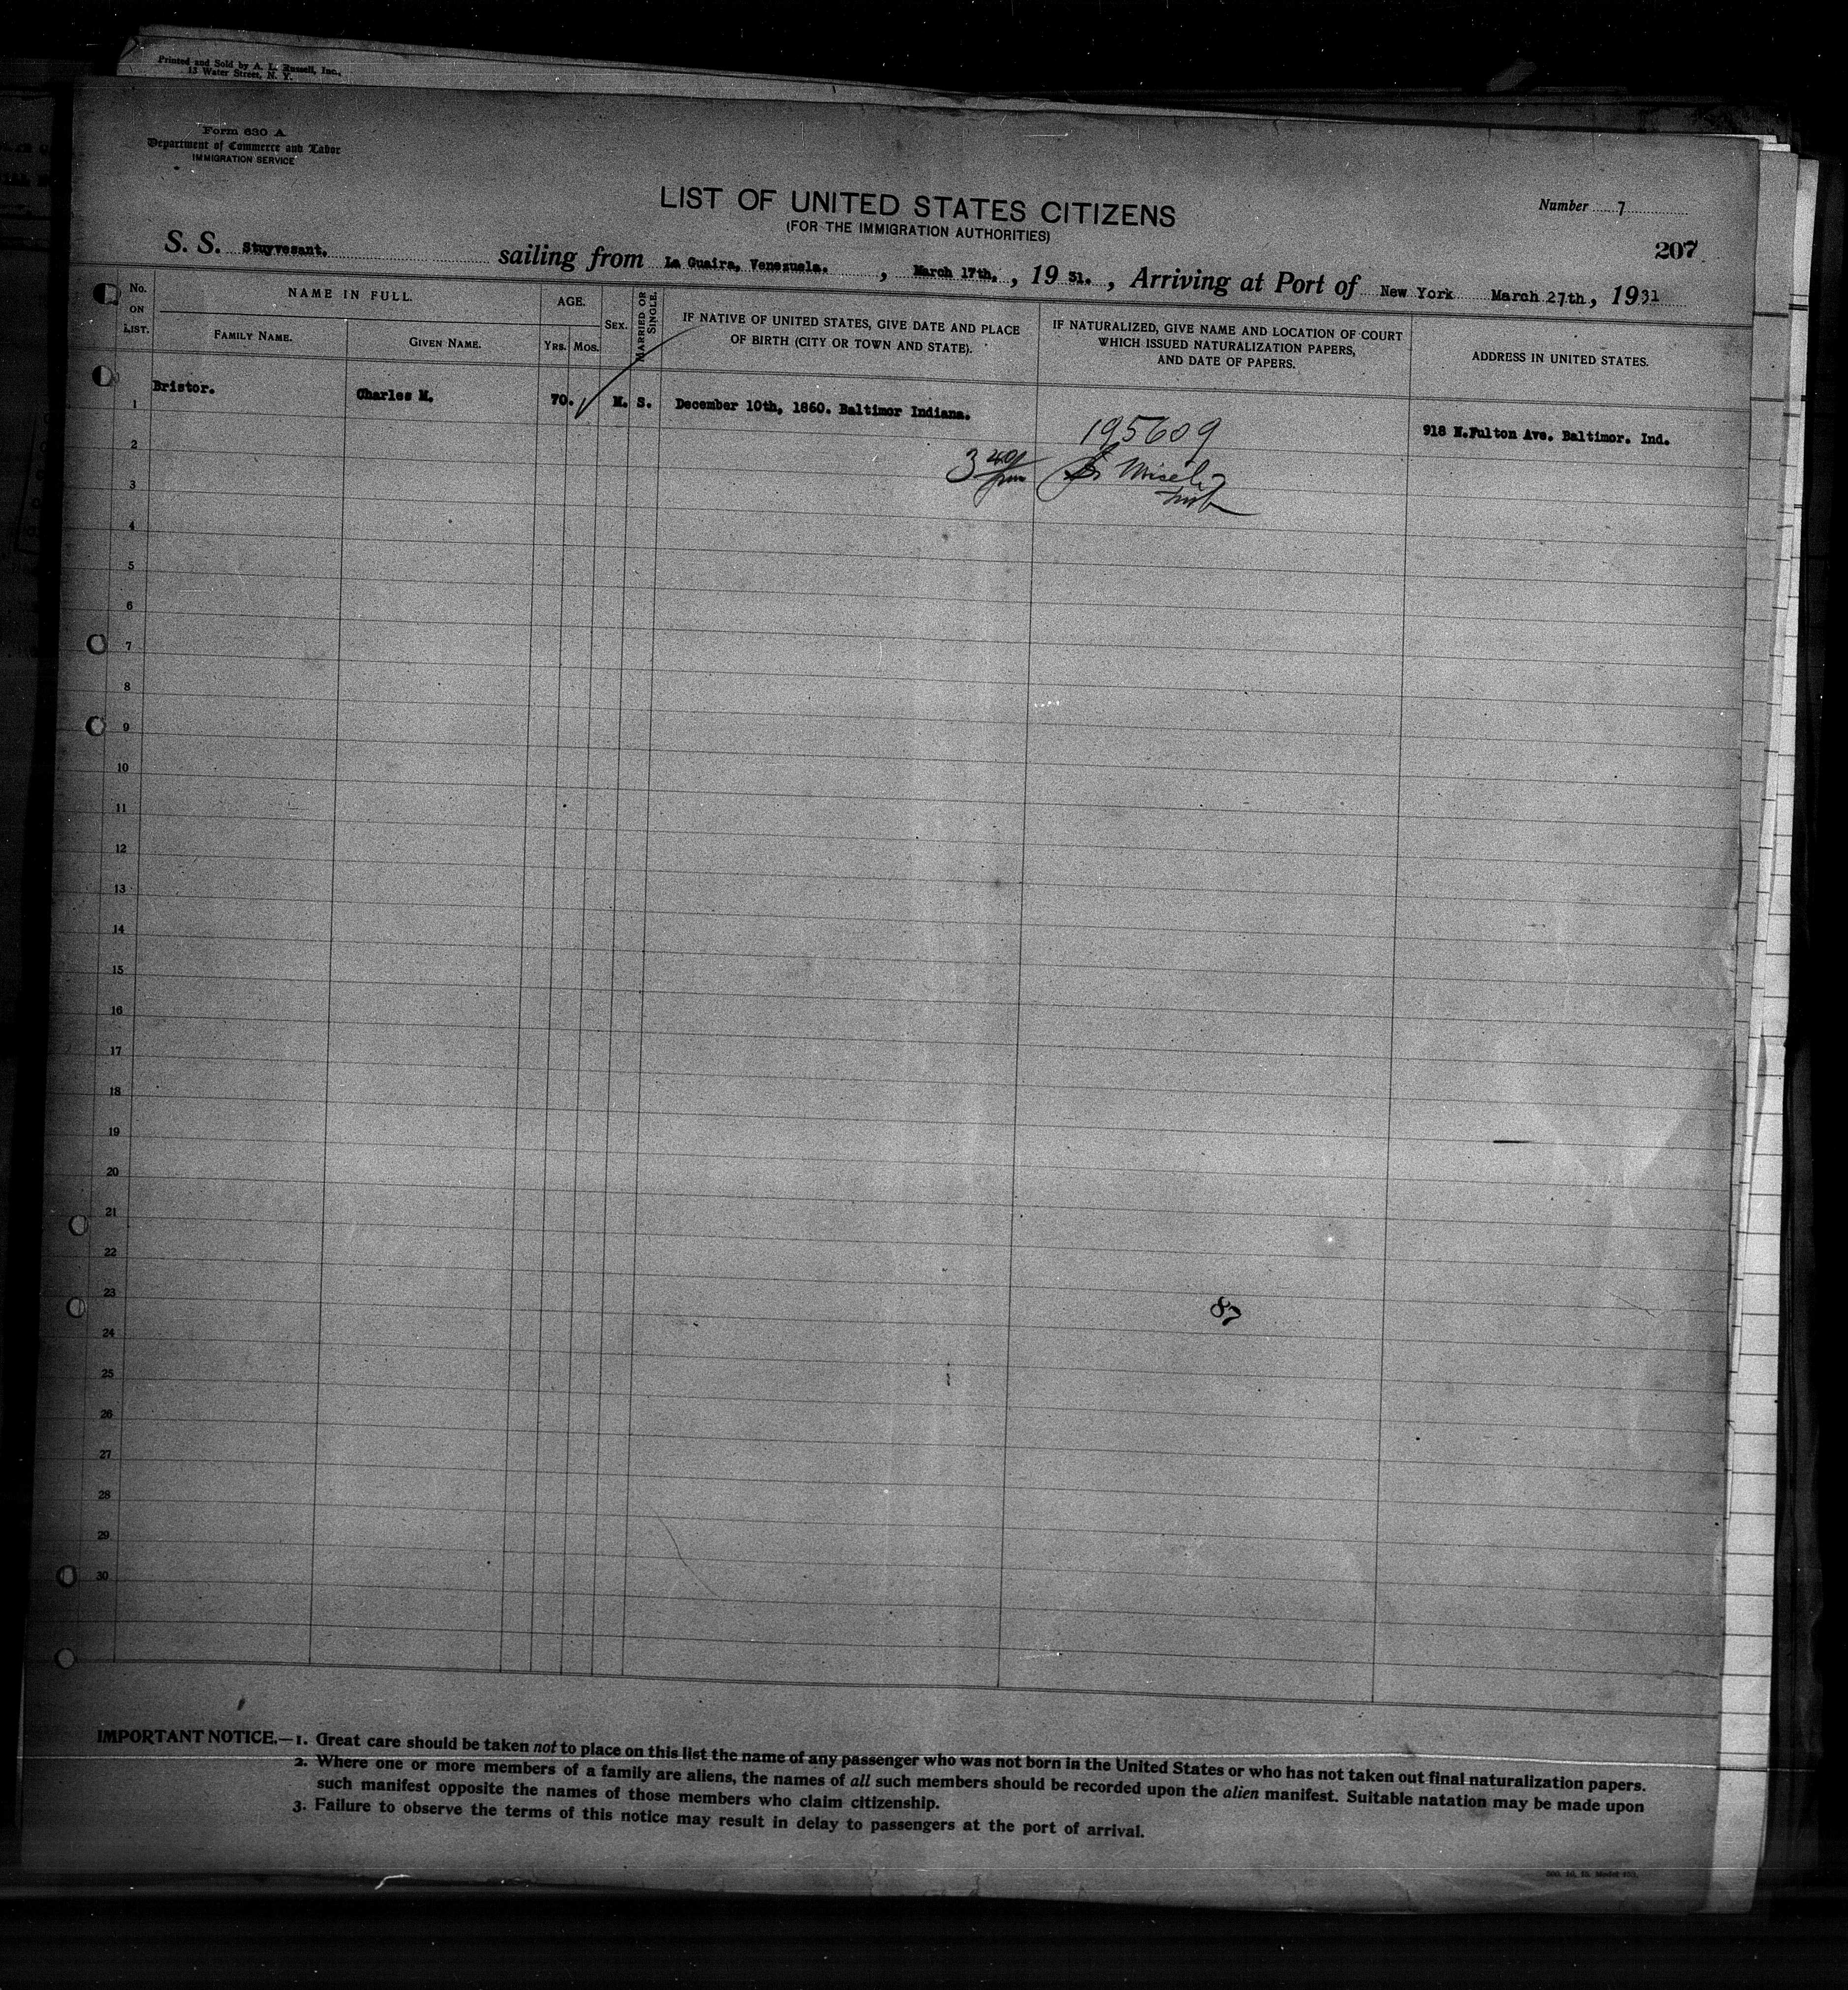 Printed and Sold by A. L. Russell, Inc.,
13 Water Street, N. Y.
Form 630 A
Department of Commerce and Labor
IMMIGRATION SERVICE
LIST OF UNITED STATES CITIZENS
(FOR THE IMMIGRATION AUTHORITIES)
Number 7
207
S. S. Stuyvesant. sailing from La Guaira, Venezuela. , March 17th. , 19 31. , Arriving at Port of New York March 27th , 1931
No. ON LIST.
NAME IN FULL.
FAMILY NAME.
GIVEN NAME.
AGE.
YRS. MOS.
SEX.
MARRIED OR SINGLE.
IF NATIVE OF UNITED STATES, GIVE DATE AND PLACE
OF BIRTH (CITY OR TOWN AND STATE).
IF NATURALIZED, GIVE NAME AND LOCATION OF COURT
WHICH ISSUED NATURALIZATION PAPERS,
AND DATE OF PAPERS.
ADDRESS IN UNITED STATES.
1 Bristor. Charles M. 70. M. S. December 10th, 1860. Baltimor Indiana. 918 N.Fulton Ave. Baltimor. Ind.
195609
2
3 40 pm
3
4
5
6
7
8
9
10
11
12
13
14
15
16
17
18
19
20
21
22
23
87
24
25
26
27
28
29
30
IMPORTANT NOTICE.—1. Great care should be taken not to place on this list the name of any passenger who was not born in the United States or who has not taken out final naturalization papers.
2. Where one or more members of a family are aliens, the names of all such members should be recorded upon the alien manifest. Suitable natation may be made upon
such manifest opposite the names of those members who claim citizenship.
3. Failure to observe the terms of this notice may result in delay to passengers at the port of arrival.